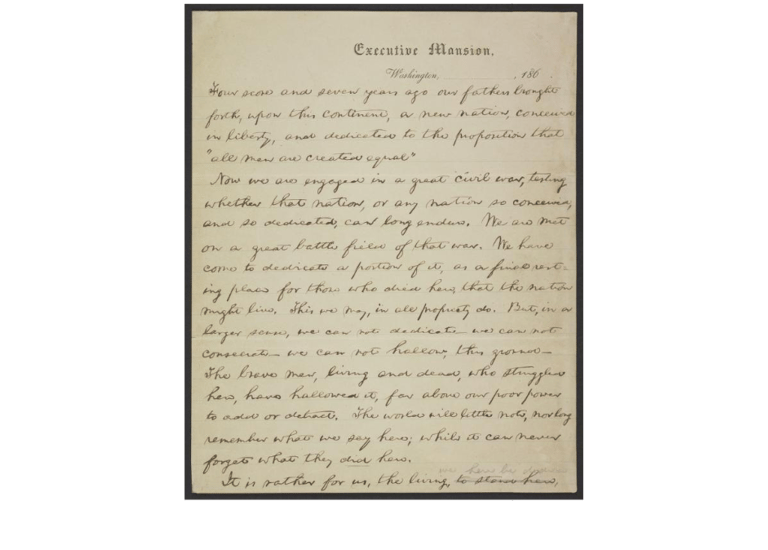 Executive Mansion,
Washington, , 186 .
Four score and seven years ago our fathers brought
forth, upon this continent, a new nation, conceived
in liberty, and dedicated to the proposition that
"all men are created equal"
Now we are engaged in a great civil war, testing
whether that nation, or any nation so conceived,
and so dedicated, can long endure. We are met
on a great battle field of that war. We have
come to dedicate a portion of it, as a final rest-
ing place for those who died here, that the nation
might live. This we may, in all propriety do. But, in a
larger sense, we can not dedicate — we can not
consecrate — we can not hallow, this ground —
The brave men, living and dead, who struggled
here, have hallowed it, far above our poor power
to add or detract. The world will little note, nor long
remember what we say here; while it can never
forget what they did here.
It is rather for us, the living, to stand here,
we here be dedica